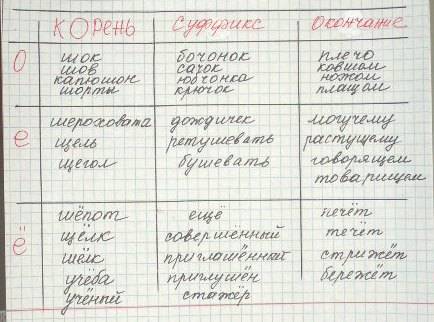 Корень Суффикс Окончание
О
шок бочонок плечо
шов сачок ковшом
капюшон юбчонка ножом
шорты крючок плащом
е
шероховата дождичек могучему
щель ретушевать растущему
щегол бушевать говорящем
товарищем
ё
шёпот ещё печёт
щёлк совершённый течёт
шёлк приглашённый стрижёт
учёба приглушён бережёт
учёный стажёр